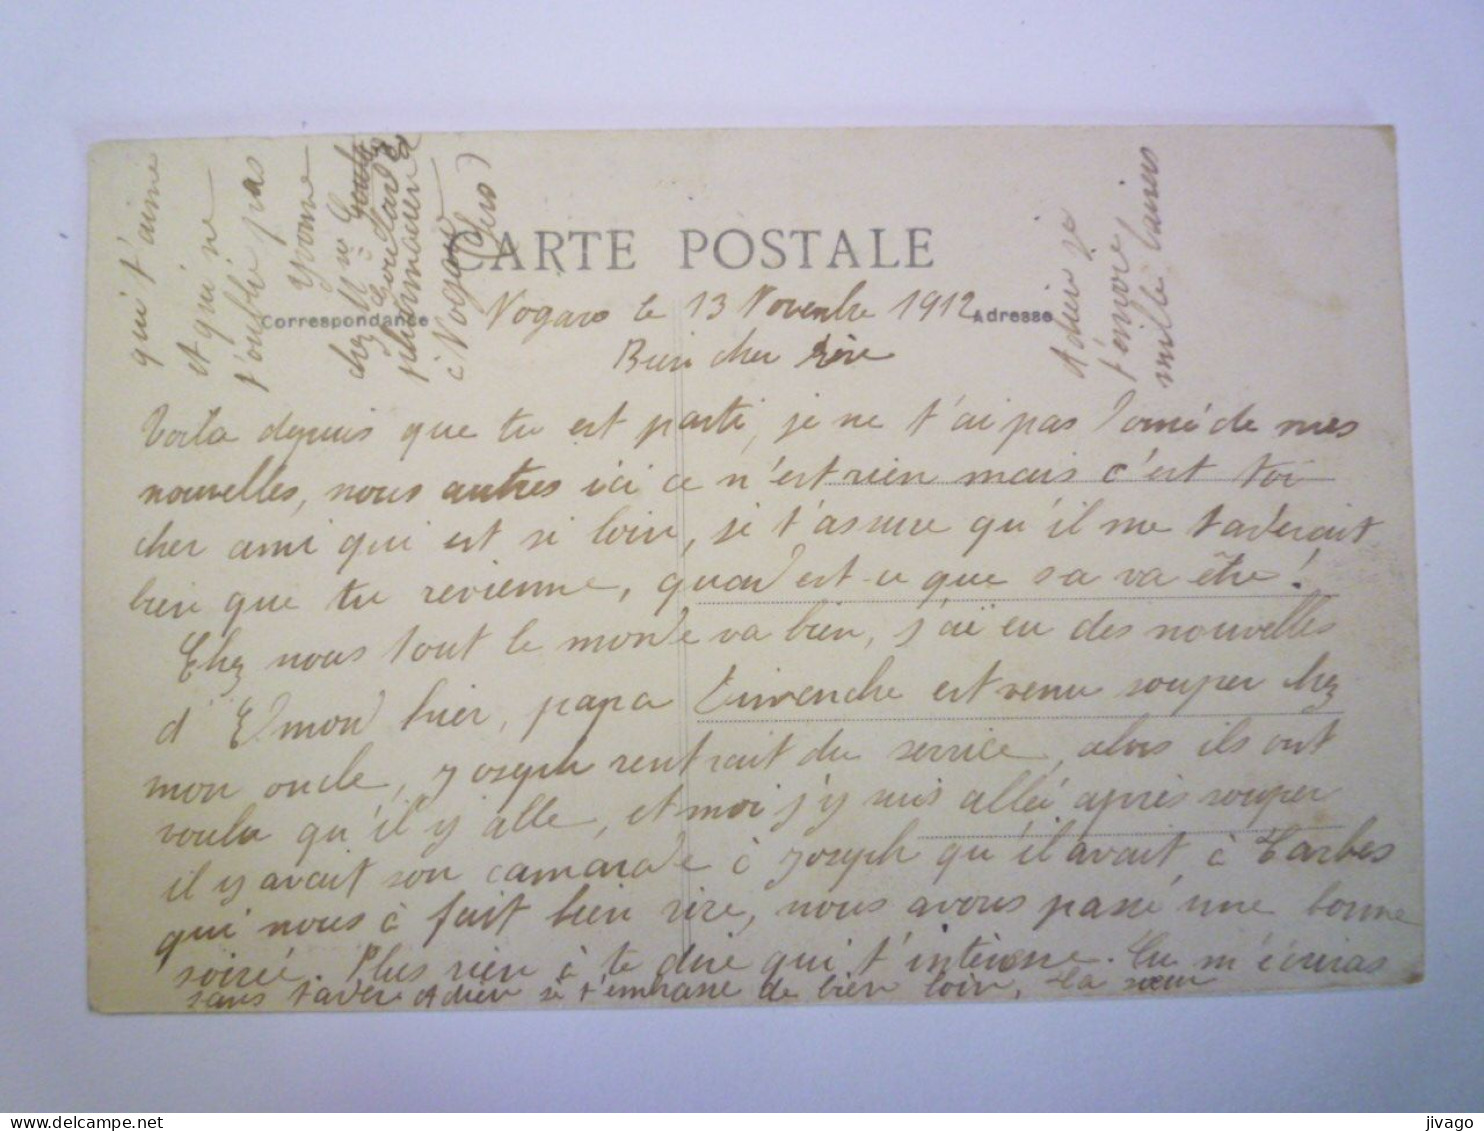 CARTE POSTALE
Correspondance
Adresse
Nogaro le 13 Novembre 1912
Bien cher
Voila depuis que tu est parti, je ne t'ai pas donné de mes
nouvelles, nous autres ici ce n'est rien mais c'est toi
cher ami qui est si loin, je t'assure qu'il me tarderait
bien que tu revienne, quand est-ce que sa va être!
Chez nous tout le monde va bien, j'ai eu des nouvelles
d'Edmond hier, papa Dimenche est venu souper chez
mon oncle, Joseph rentrait du service, alors ils ont
voulu qu'il y alle, et moi j'y suis allée après souper
il y avait son camarade à Joseph qu'il avait à Tarbes
qui nous à fait bien rire, nous avons passé une bonne
soirée. Plus rien à te dire qui t'intéresse. Tu m'écriras
sans tarder. Adieu je t'embrasse de bien loin, ta sœur
qui t'aime
et qui ne
t'oublie pas
Yvonne
chez
pharmacien
à Nogaro
(Gers)
Adieu je
t'envoie
mille baisers